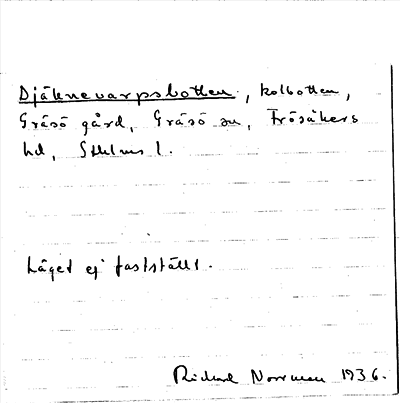 Djäknevarpsbotten, kolbotten,
Gräsö gård, Gräsö sn, Frösåkers
hd, Sthlms l.
Läget ej fastställt.
Richard Norrman 1936.